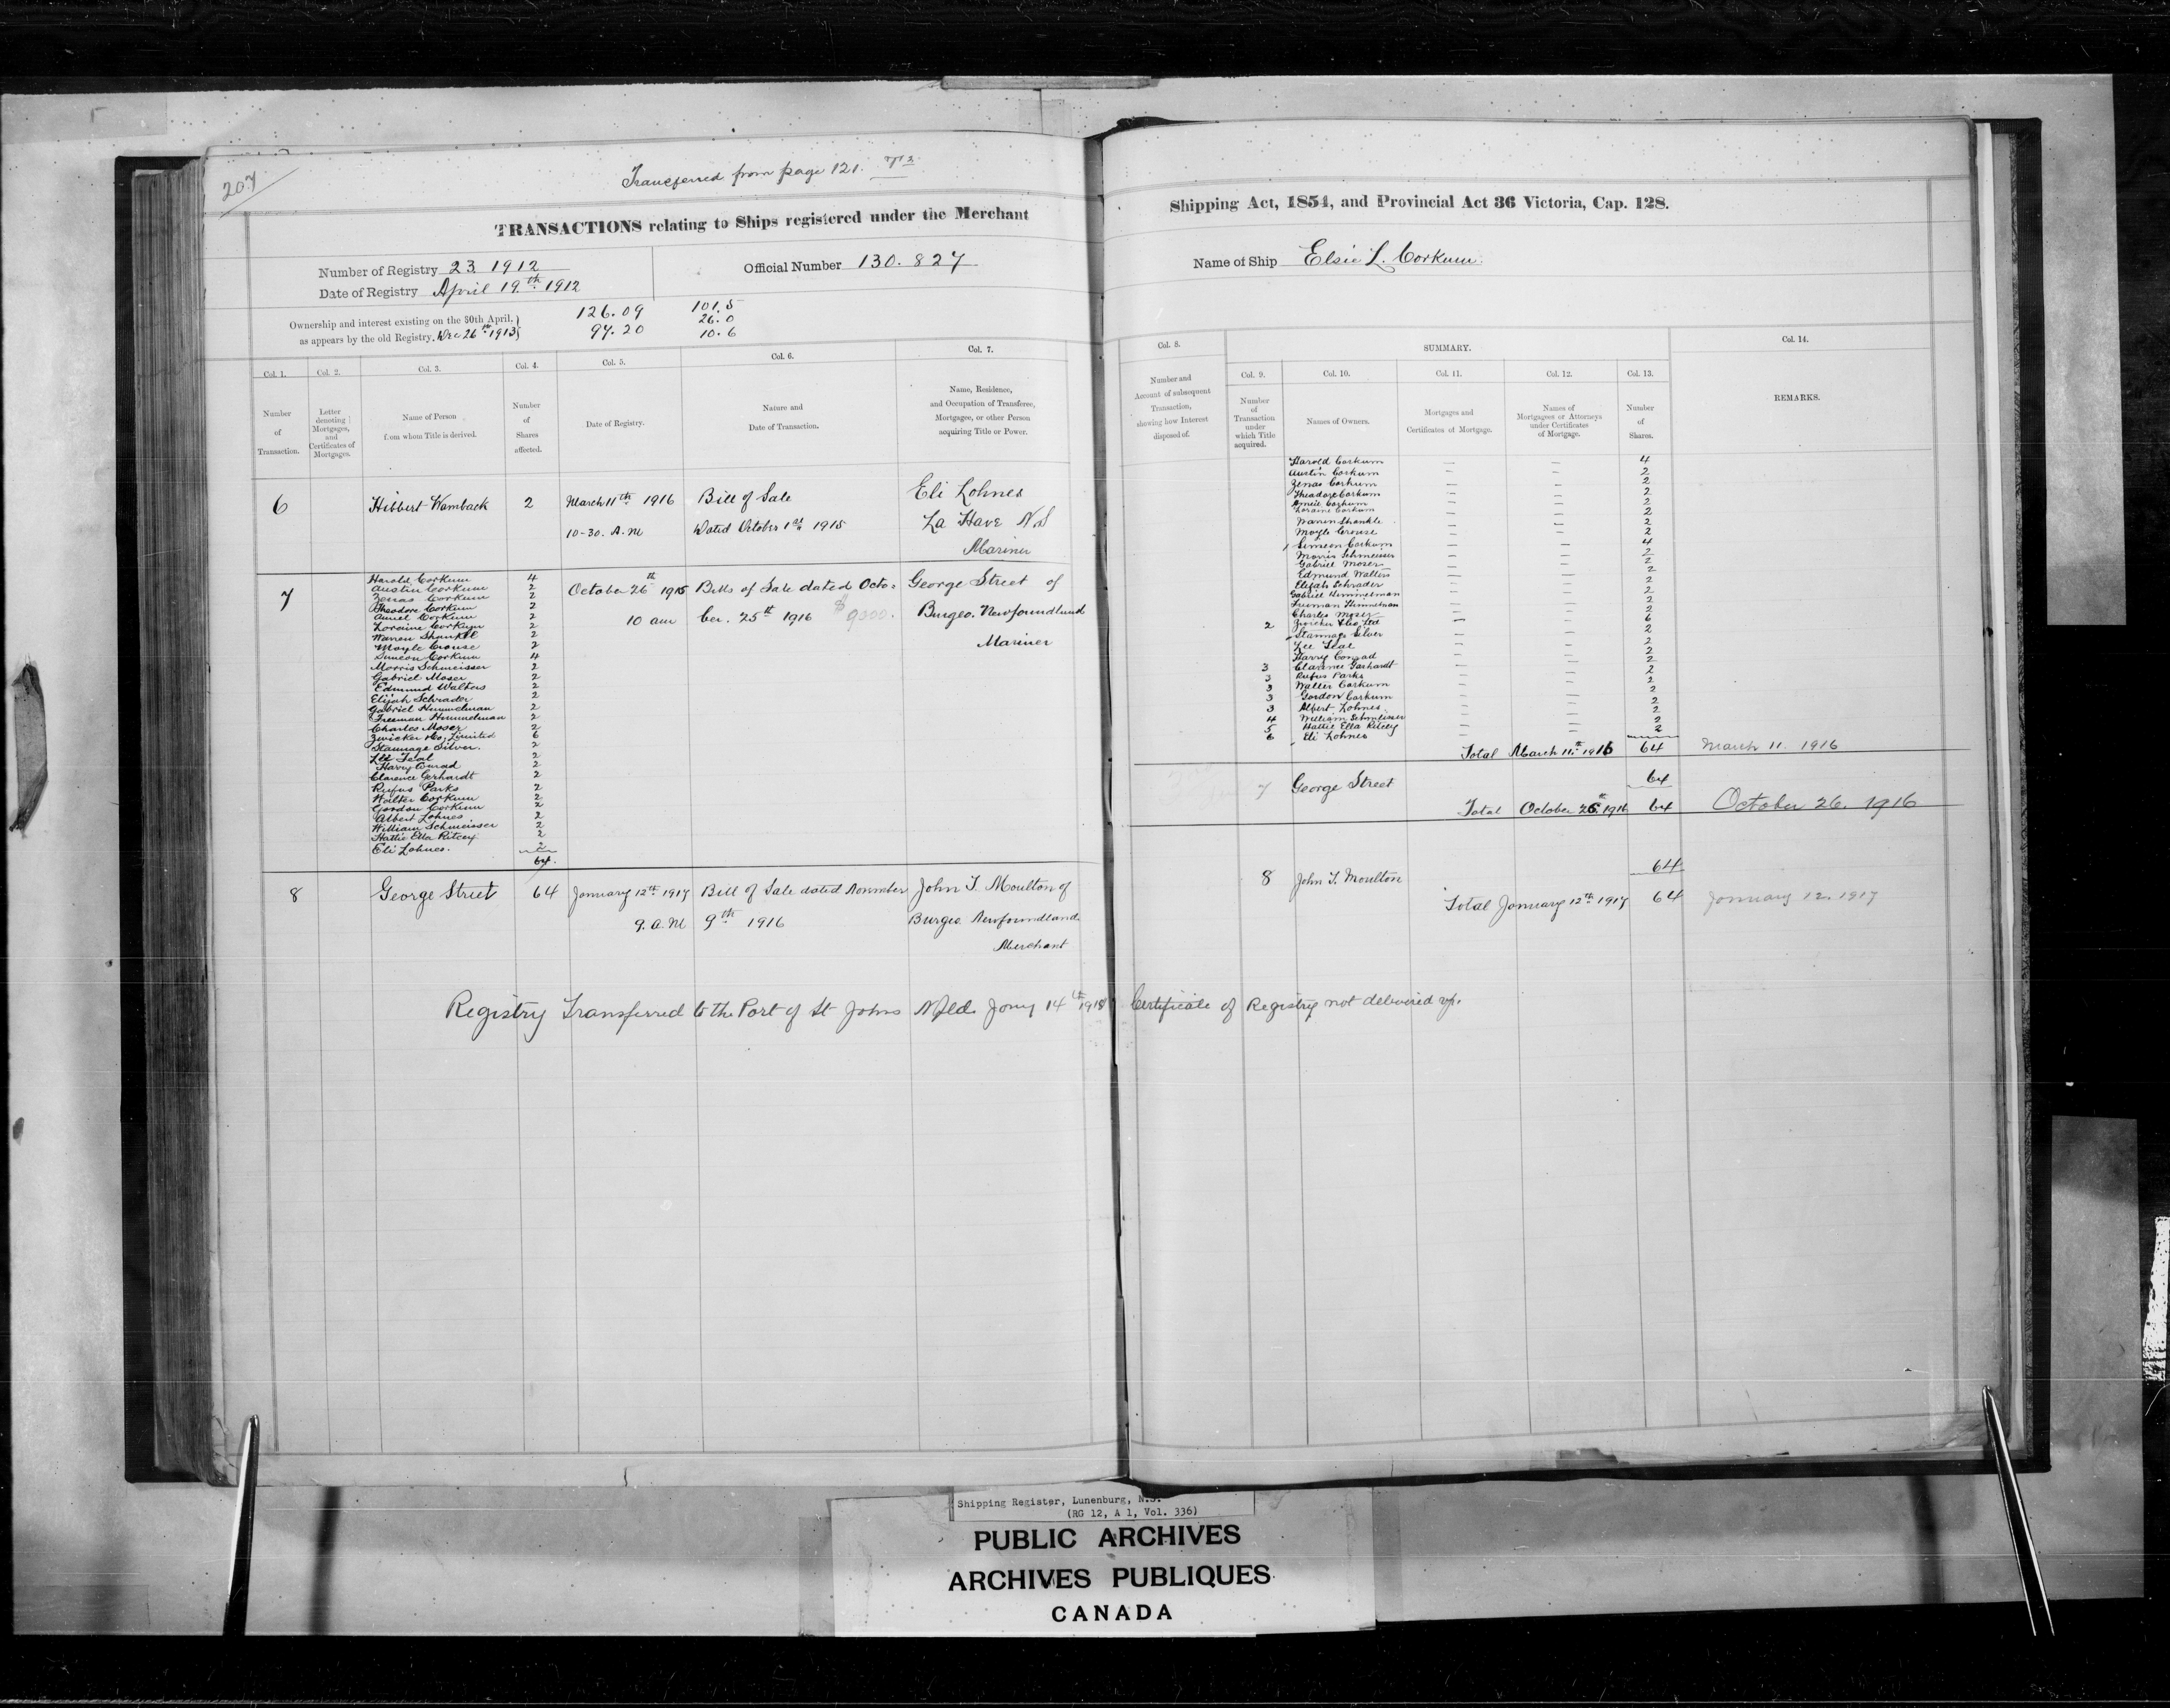 207
Transferred from page 121.
TRANSACTIONS relating to Ships registered under the Merchant
Number of Registry 23 1912
Date of Registry April 19th 1912
Official Number 130.827
Ownership and interest existing on the 30th April,
as appears by the old Registry. Dec 26th 1913
126.09
97.20
101.5
26.0
10.6
Col. 1.
Col. 2.
Col. 3.
Col. 4.
Col. 5.
Col. 6.
Col. 7.
Number
of
Transaction.
Letter
denoting
Mortgages,
and
Certificates of
Mortgages.
Name of Person
from whom Title is derived.
Number
of
Shares
affected.
Date of Registry.
Nature and
Date of Transaction.
Name, Residence,
and Occupation of Transferee,
Mortgagee, or other Person
acquiring Title or Power.
6 Hibbert Wamback 2 March 11th 1916 Bill of Sale Eli Lohnes
10-30. A.M Dated October 1st 1915 La Have N.S
Mariner
7
Harold Corkum 4
Austin Corkum 2
Zenas Corkum 2
Theodore Corkum 2
Corkum 2
Loraine Corkum 2
Warren Shankle 2
Moyle Crouse 2
Simeon Corkum 4
Morris Schmeisser 2
Gabriel Moser 2
Edmund Walters 2
Elijah Schrader 2
Gabriel Himmelman 2
Freeman Himmelman 2
Charles Moser 2
Zwicker & Co. Limited 6
Stannage Silver. 2
Lee Teal 2
Harry Conrad 2
Clarence Gerhardt 2
Rufus Parks 2
Walter Corkum 2
Gordon Corkum 2
Albert Lohnes 2
William Schmeisser 2
Hattie Ella Ritcey 2
Eli Lohnes. 2
64.
October 26th
10 am
Bills of Sale dated Octo=
ber. 25th 1916 $9000.
George Street of
Burgeo. Newfoundland
Mariner
8 George Street 64 January 12th 1917 Bill of Sale dated November John T. Moulton of
9. A.M 9th 1916 Burgeo. Newfoundland
Merchant
Registry Transferred to the Port of St Johns Nfld. Jany 14th
Shipping Act, 1854, and Provincial Act 36 Victoria, Cap. 128.
Name of Ship Elsie L. Corkum.
Col. 8.
Number and
Account of subsequent
Transaction,
showing how Interest
disposed of.
SUMMARY.
Col. 9.
Col. 10.
Col. 11.
Col. 12.
Col. 13.
Col. 14.
Number
of
Transaction
under
which Title
acquired.
Names of Owners.
Mortgages and
Certificates of Mortgage.
Names of
Mortgagees or Attorneys
under Certificates
of Mortgage.
Number
of
Shares.
REMARKS.
Harold Corkum — — 4
Austin Corkum — — 2
Zenas Corkum — — 2
Theodore Corkum — — 2
Corkum — — 2
Loraine Corkum — — 2
Warren Shankle — — 2
Moyle Crouse — — 2
1 Simeon Corkum — — 4
Morris Schmeisser — — 2
Gabriel Moser — — 2
Edmund Walters — — 2
Elijah Schrader — — 2
Gabriel Himmelman — — 2
Freeman Himmelman — — 2
Charles Moser — — 2
2 Zwicker & Co. Ltd — — 6
Stannage Silver — — 2
Lee Teal — — 2
Harry Conrad — — 2
3 Clarence Garhardt — — 2
3 Rufus Parks — — 2
3 Walter Corkum — — 2
3 Gordon Corkum — — 2
3 Albert Lohnes — — 2
4 William Schmeisser — — 2
5 Hattie Ella Ritcey — — 2
6 Eli Lohnes 2
Total March 11th 1916 64 March 11. 1916
7 George Street 64
Total October 26th 1916 64 October 26. 1916
8 John T. Moulton 64
Total January 12th 1917 64 January 12. 1917
Certificate of Registry not delivered up.
Shipping Register, Lunenburg, N.S.
(RG 12, A 1, Vol. 336)
PUBLIC ARCHIVES
ARCHIVES PUBLIQUES
CANADA